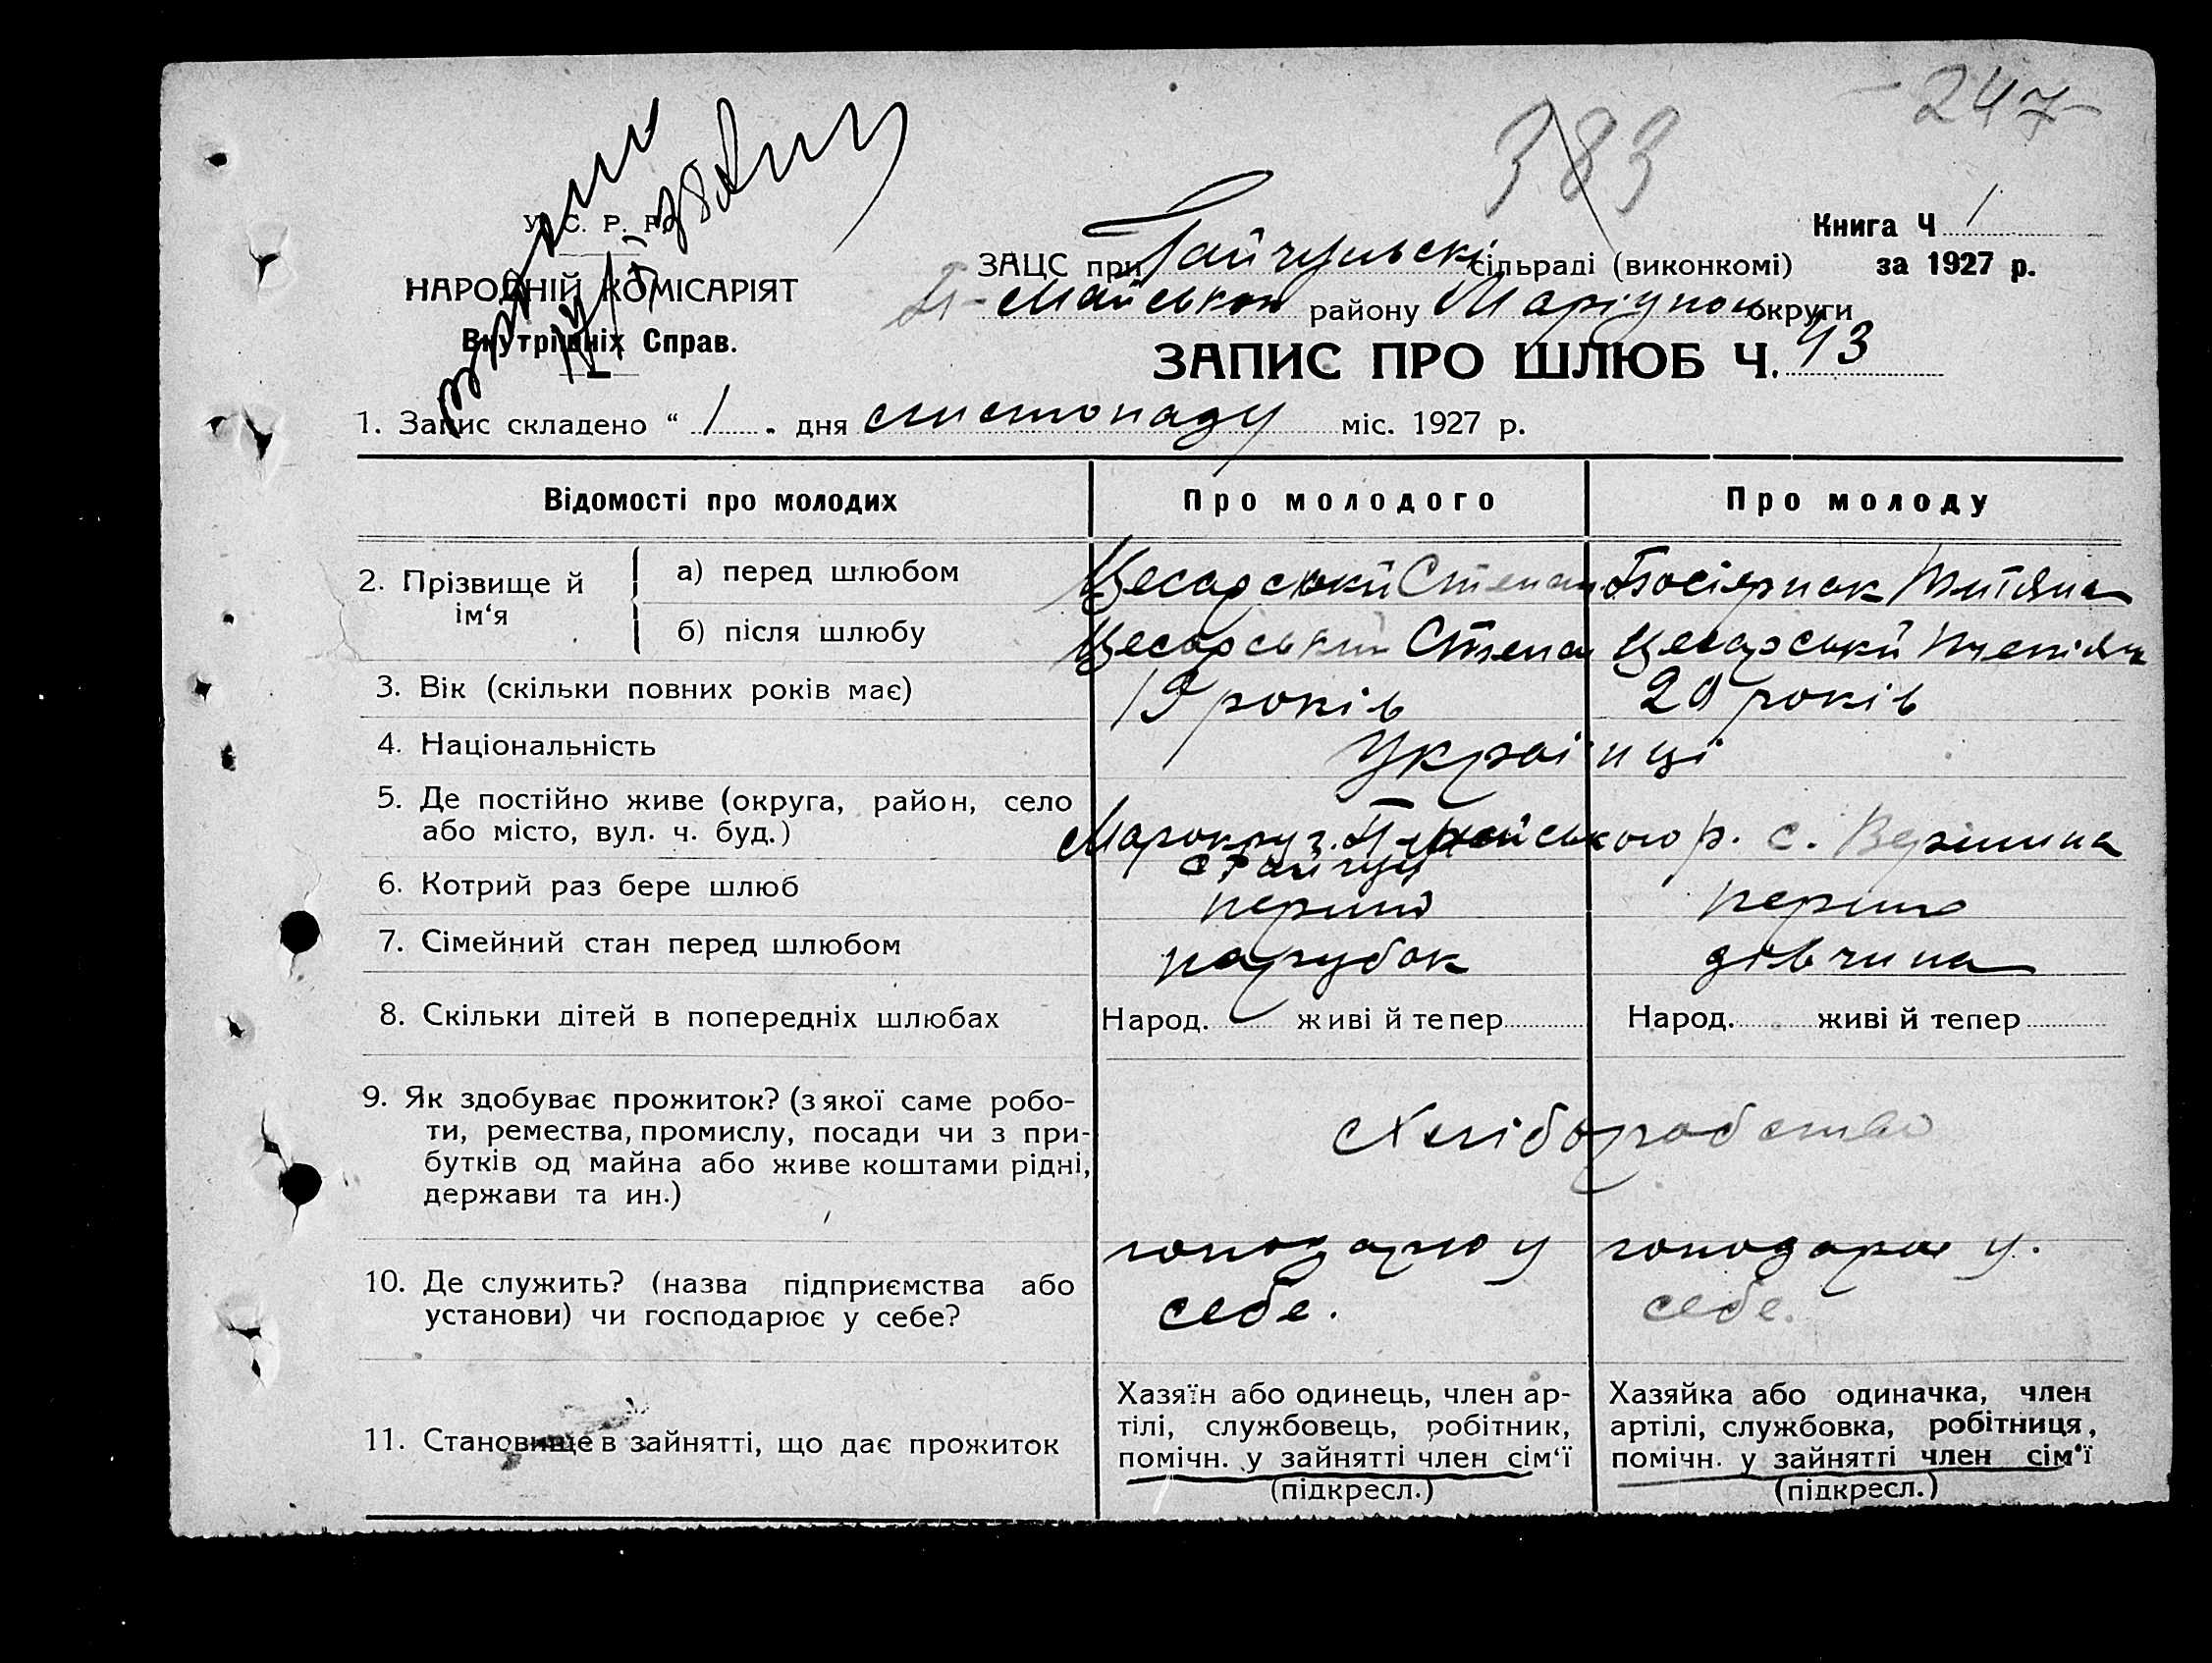 247
383
У. С. Р. Р.
НАРОДНІЙ КОМІСАРІЯТ
Внутрішніх Справ.
Книга Ч 1
за 1927 р.
ЗАЦС при Гайчульскі сільраді (виконкомі)
П-Майськом району Маріупол округи
ЗАПИС ПРО ШЛЮБ Ч. 43
1. Запис складено “ 1 „ дня листопаду міс. 1927 р.
Відомості про молодих Про молодого Про молоду
2. Прізвище й ім‘я
а) перед шлюбом Цесарський Степан Тетяна
б) після шлюбу Цесарський Степан Цесарській
3. Вік (скільки повних років має) 19 років 20 років
4. Національність Українці
5. Де постійно живе (округа, район, село
або місто, вул. ч. буд.) П-Майського р. с. Вершина
с Гайчул
6. Котрий раз бере шлюб перший перша
7. Сімейний стан перед шлюбом парубок дівчина
8. Скільки дітей в попередніх шлюбах Народ. живі й тепер Народ. живі й тепер
9. Як здобуває прожиток? (з якої саме робо-
ти, ремества, промислу, посади чи з при-
бутків од майна або живе коштами рідні,
держави та ин.)
Хліборобство
10. Де служить? (назва підприємства або
установи) чи господарює у себе?
у себе.
у себе.
11. Становище в зайнятті, що дає прожиток
Хазяїн або одинець, член ар-
тілі, службовець, робітник,
помічн. у зайнятті член сім‘ї
(підкресл.)
Хазяйка або одиначка, член
артілі, службовка, робітниця,
помічн. у зайнятті член сім‘ї
(підкресл.)